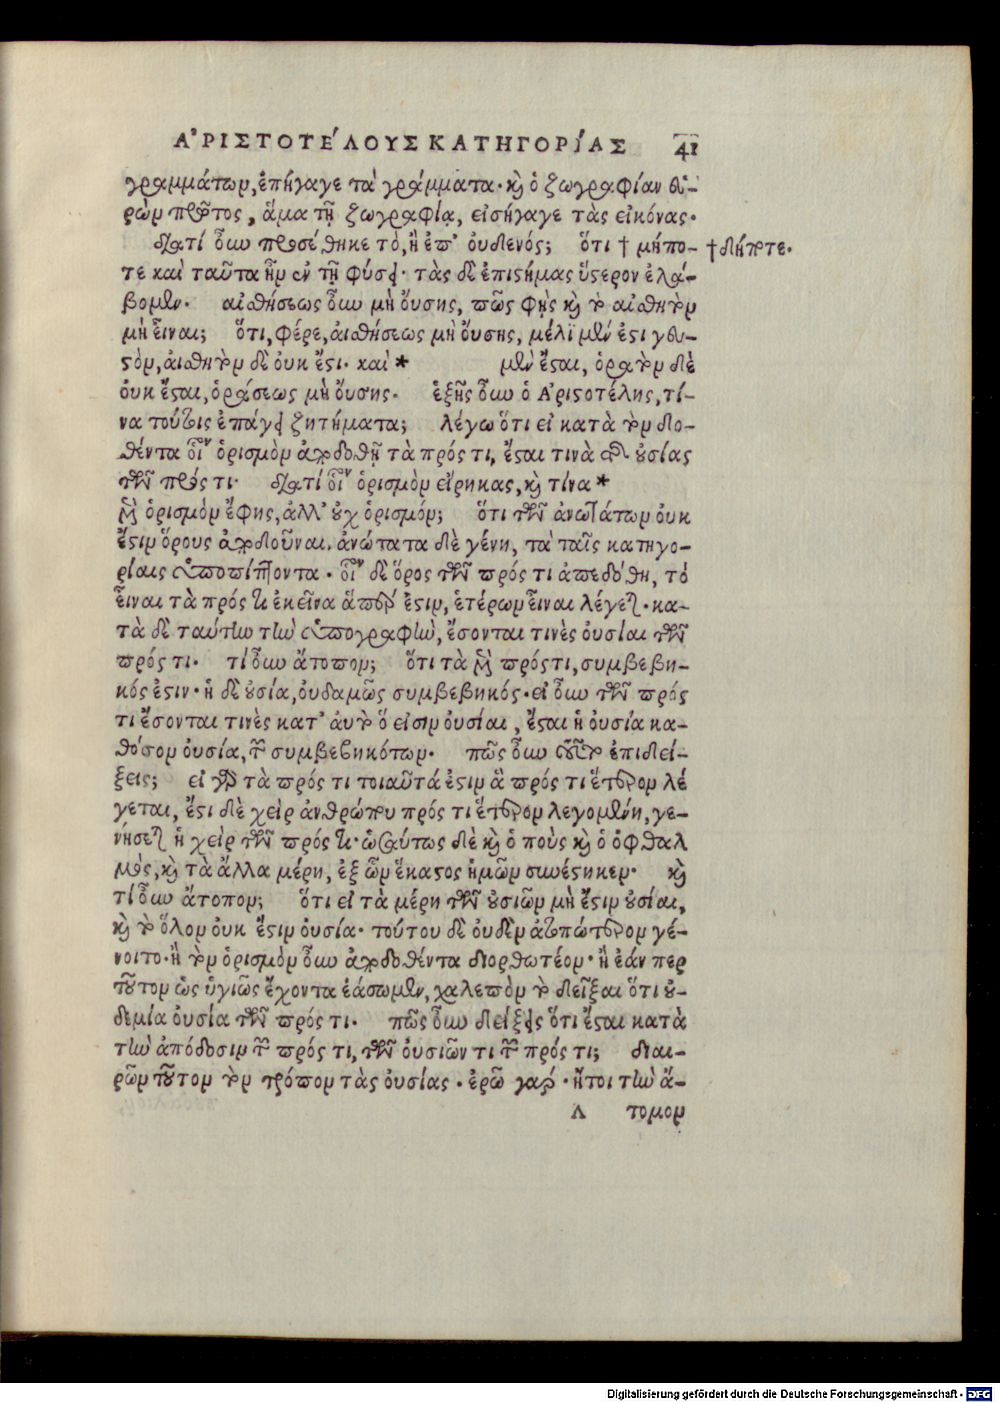 ΑʼΡΙΣΤΟΤΕʹΛΟΥΣ ΚΑΤΗΓΟΡΙʹΑΣ 41
γραμμάτων, ἐπήγαγε τὰ γράμματα· καὶ ὁ ζωγραφίαν εὑ-
ρὼν πρῶτος, ἅμα τῇ ζωγραφίᾳ, εἰσήγαγε τὰς εἰκόνας·
διατί οὖν προσέθηκε τὸ, ἢ ἐπ' οὐδενός; ὅτι † μήπο- † δήποτε·
τε καὶ ταῦτα ἦν ἐν τῇ φύσει· τὰς δὲ ἐπιστήμας ὕστερον ἐλά-
βομεν· αἰσθήσεως οὖν μὴ οὔσης, πῶς φῂς καὶ τὸ αἰσθητὸν
μὴ εἶναι; ὅτι, φέρε, αἰσθήσεως μὴ οὔσης, μέλι μέν ἐστι γευ-
στὸν, αἰσθητὸν δὲ οὐκ ἔστι· καὶ * μὲν ἔσται, ὁρατὸν δὲ
οὐκ ἔσται, ὁράσεως μὴ οὔσης· ἑξῆς οὖν ὁ Ἀριστοτέλης, τί-
να τούτοις ἐπάγει ζητήματα; λέγω ὅτι εἰ κατὰ τὸν δο-
θέντα ὁρισμὸν ἀποδοθῇ τὰ πρός τι, ἔσται τινὰ τῆς οὐσίας
τῶν πρός τι· διατί ὁρισμὸν εἴρηκας, καὶ τίνα *
ὁρισμὸν ἔφης, ἀλλ' οὐχ ὁρισμόν; ὅτι τῶν ἀνωτάτων οὐκ
ἔστιν ὅρους ἀποδοῦναι. ἀνώτατα δὲ γένη, τὰ ταῖς κατηγο-
ρίαις ὑποπίπτοντα· δὲ ὅρος τῶν πρός τι ἀπεδόθη, τὸ
εἶναι τὰ πρός τι ἐκεῖνα ἅπερ ἐστὶν, ἑτέρων εἶναι λέγεται· κα-
τὰ δὲ ταύτην τὴν ὑπογραφὴν, ἔσονται τινὲς οὐσίαι τῶν
πρός τι· τί οὖν ἄτοπον; ὅτι τὰ πρός τι, συμβεβη-
κός ἐστιν· ἡ δὲ οὐσία, οὐδαμῶς συμβεβηκός· εἰ οὖν τῶν πρός
τι ἔσονται τινὲς κατ' αὐτὸ ὅ εἰσιν οὐσίαι, ἔσται ἡ οὐσία κα-
θόσον οὐσία, τῶν συμβεβηκότων· πῶς οὖν τοῦτο ἐπιδεί-
ξεις; εἰ γὰρ τὰ πρός τι τοιαῦτά ἐστιν ἃ πρός τι ἕτερον λέ
γεται, ἔστι δὲ χεὶρ ἀνθρώπου πρός τι ἕτερον λεγομένη, γε-
νήσεται ἡ χεὶρ τῶν πρός τι· ὡσαύτως δὲ καὶ ὁ ποὺς καὶ ὁ ὀφθαλ
μὸς, καὶ τὰ ἄλλα μέρη, ἐξ ὧν ἕκαστος ἡμῶν συνέστηκεν· καὶ
τί οὖν ἄτοπον; ὅτι εἰ τὰ μέρη τῶν οὐσιῶν μὴ ἔστιν οὐσίαι,
καὶ τὸ ὅλον οὐκ ἔστιν οὐσία· τούτου δὲ οὐδὲν ἀτοπώτερον γέ-
νοιτο· ἢ τὸν ὁρισμὸν οὖν ἀποδοθέντα διορθωτέον· ἢ ἐάν περ
τοῦτον ὡς ὑγιῶς ἔχοντα ἐάσωμεν, χαλεπὸν τὸ δεῖξαι ὅτι οὐ-
δεμία οὐσία τῶν πρός τι· πῶς οὖν δείξεις ὅτι ἔσται κατὰ
τὴν ἀπόδοσιν τῶν πρός τι, τῶν οὐσιῶν τι τῶν πρός τι; διαι-
ρῶν τοῦτον τὸν τρόπον τὰς οὐσίας· ἐρῶ γάρ· ἤτοι τὴν ἄ-
Λ τομον
Digitalisierung gefördert durch die Deutsche Forschungsgemeinschaft · DFG